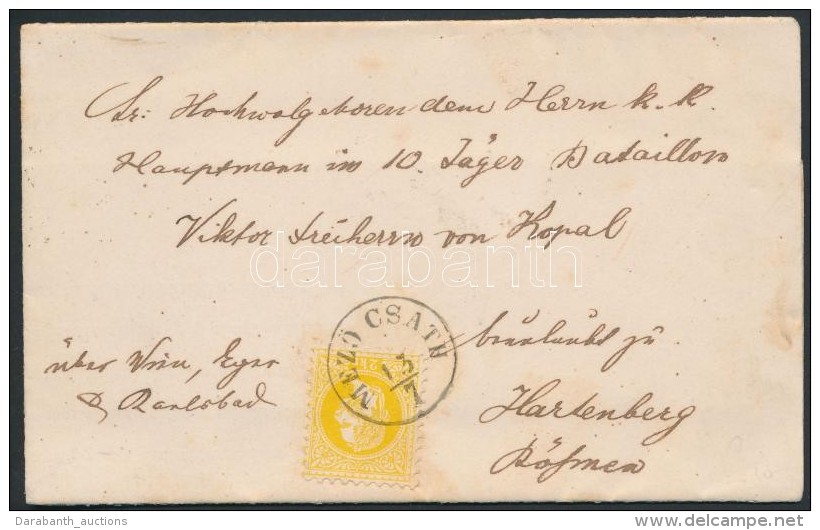 Sr: Hochwolgeboren dem Herrn k. k.
Hauptmann im 10. Jäger Bataillon
Viktor Freiherrn von Kopal
darabanth
MEZÖ CSATH
über Wien, Eger
& Karlsbad
beurlaubt zu
Hartenberg
Böhmen
Darabanth_auctions
www.delcampe.net